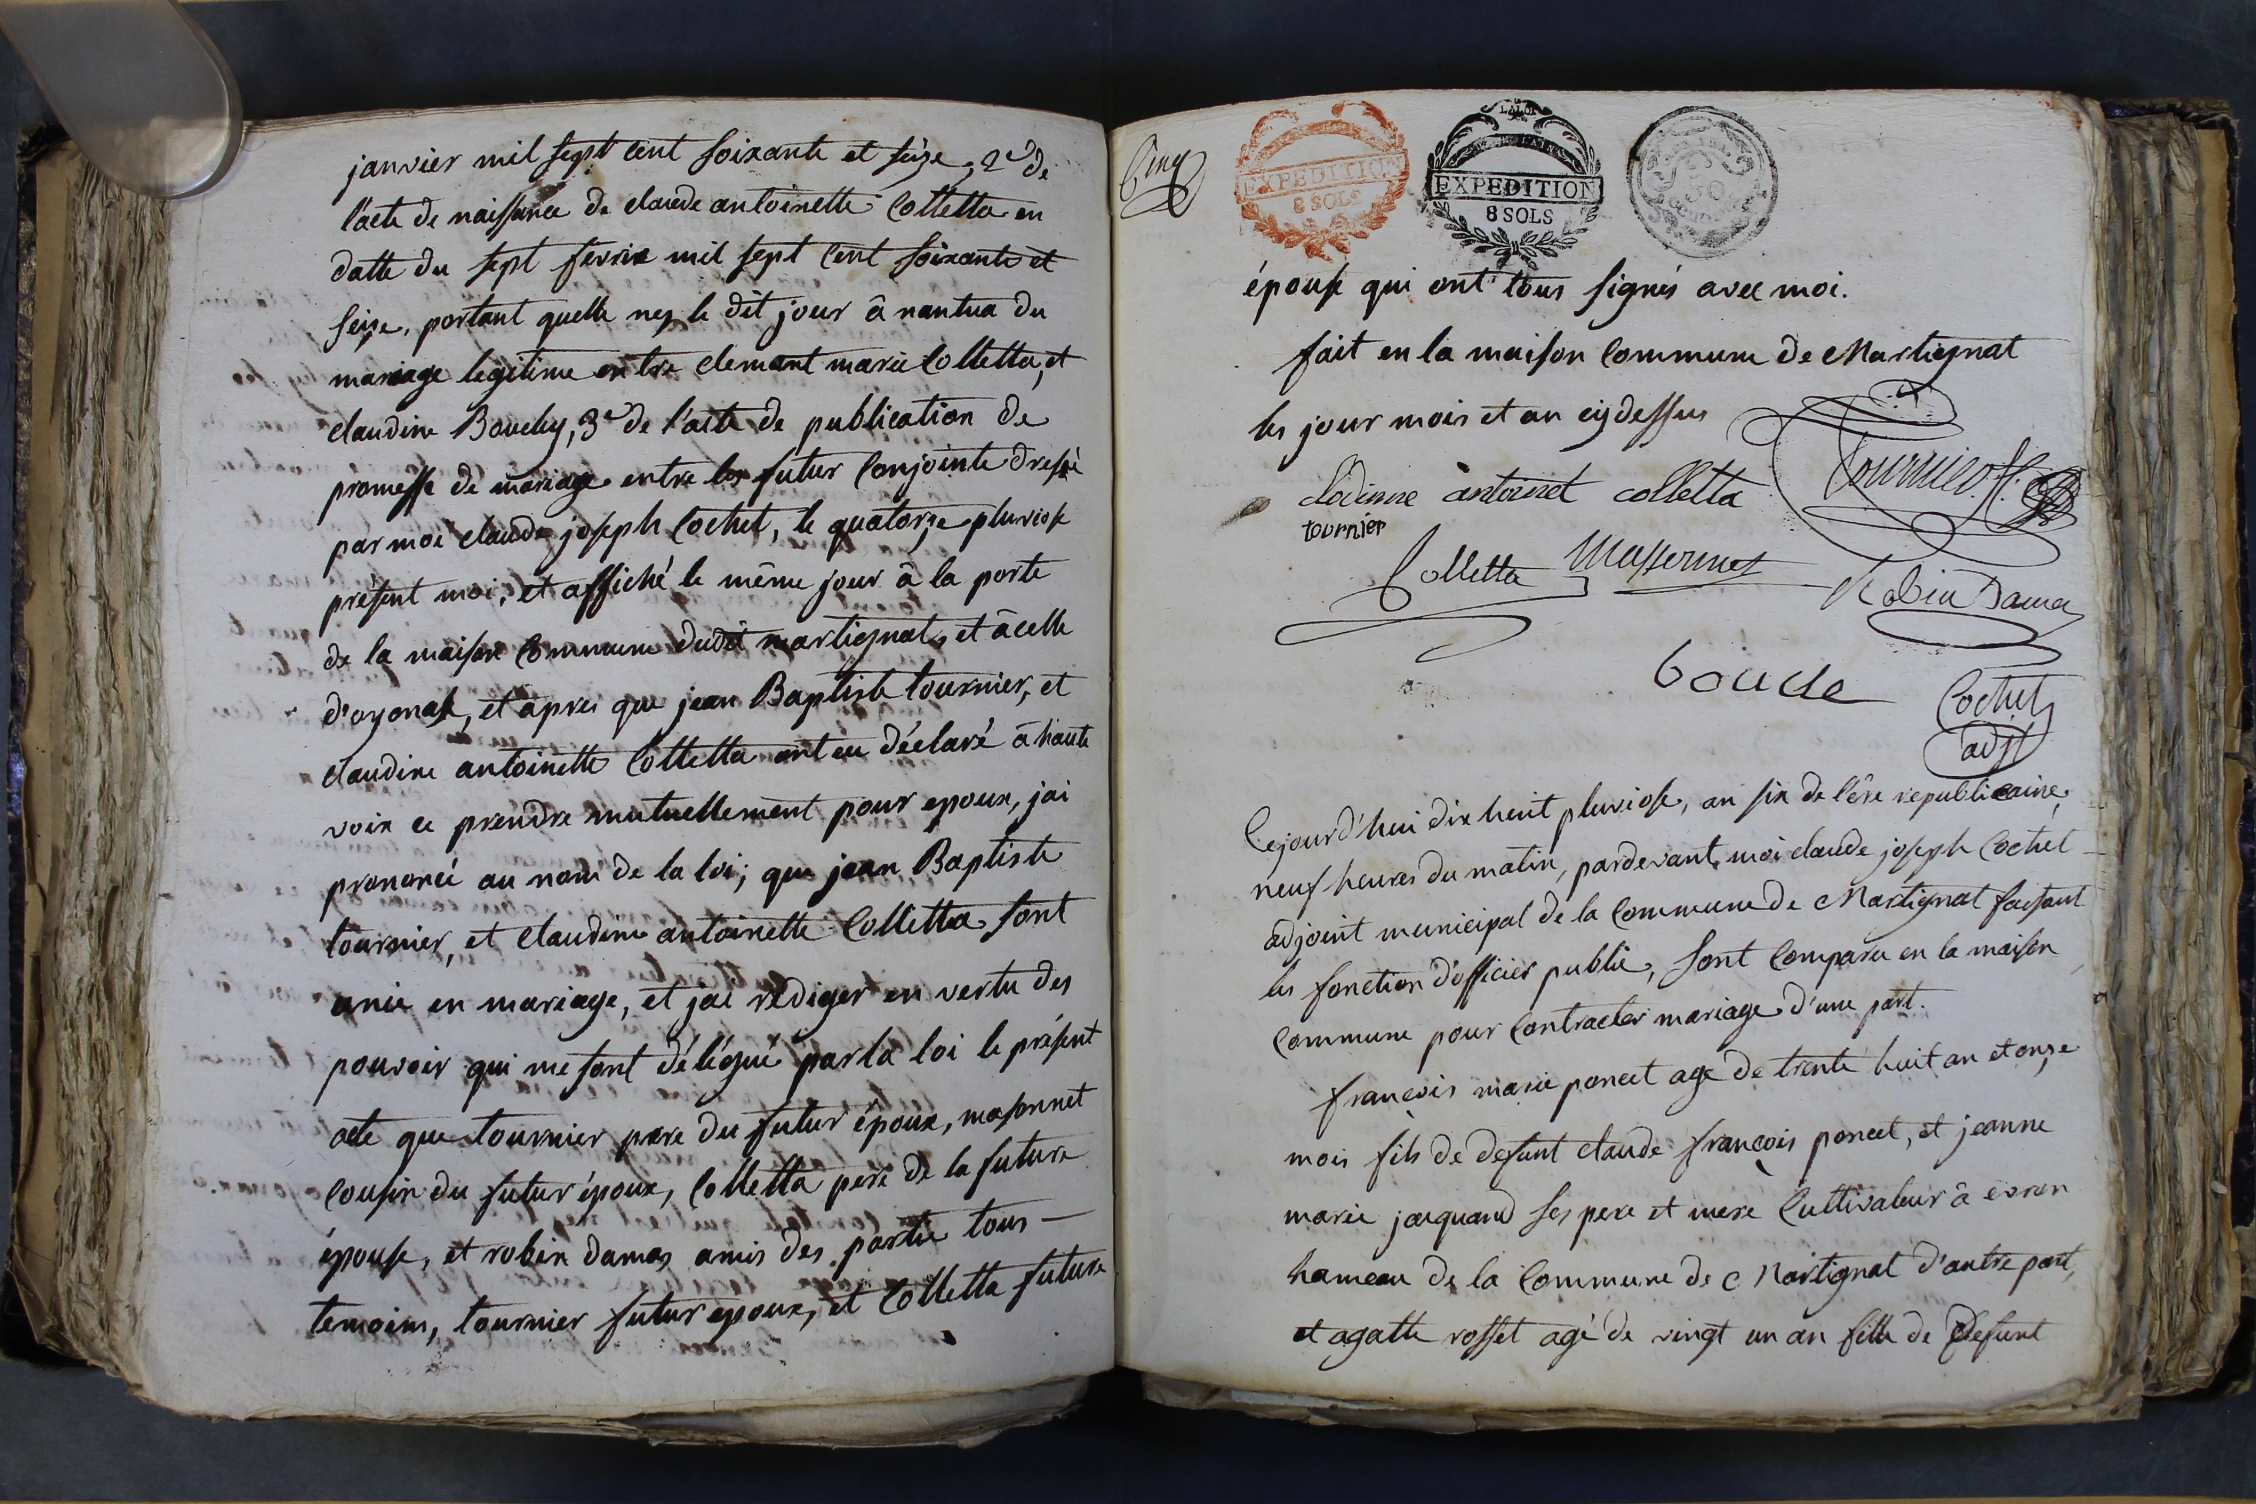 janvier mil sept cent soixante et seize, 2e de
l'acte de naissance de claude antoinette Colletta en
datte du sept fevrier mil sept cent soixante et
seize, portant quelle nez le dit jour â nantua du
mariage legitime entre clemant marie Colletta, et
claudine Bouchy, 3e de l'acte de publication de
promesse de mariage entre les futur Conjointe dressé
par moi claude joseph Cochet, le quatorze pluviose
présent moi, et affiché le même jour â la porte
de la maison Commune dudit martignat, et âcelle
d'oyonax, et aprèi que jean Baptiste tournier, et
claudine antoinette Colletta ont eu déclaré â haute
voix ce prendre mutuellement pour epoux, jai
prononcé au nom de la loi, que jean Baptiste
tournier, et claudine antoinette Colletta sont
unie en mariage, et jai rediger en vertu des
pouvoir qui me sont délégué par la loi le présent
acte que tournier pere du futur époux, masonnet
cousin du futur époux, Colletta pere de la future
épouse, et robin damas amis des partie tous
temoins, tournier futur epoux, et Colletta future
Cinq
EXPEDITION
8 SOLS
LA LOI
EXPEDITION
8 SOLS
épouse qui ont tous signés avec moi.
fait en la maison Commune de Martignat
les jour mois et an cydessus
clodinne antoinet colletta
tournier
Colletta
Robin Damas
Cochet
adjt
Cejourd'hui dix huit pluviose, an six de l'ére republicaine,
neuf heures du matin, pardevant moi claude joseph Cochet
adjoint municipal de la Commune de Martignat faisant
les fonction d'officier public, sont Comparu en la maison
Commune pour Contracter mariage d'une part.
francois marie poncet age de trente huit an et onze
mois fils de defunt claude francois poncet, et jeanne
marie jacquand ses pere et mere Cultivateur â evron
hameau de la Commune de Martignat d'autre part,
et agatte rosset agé de vingt un an fille de defunt